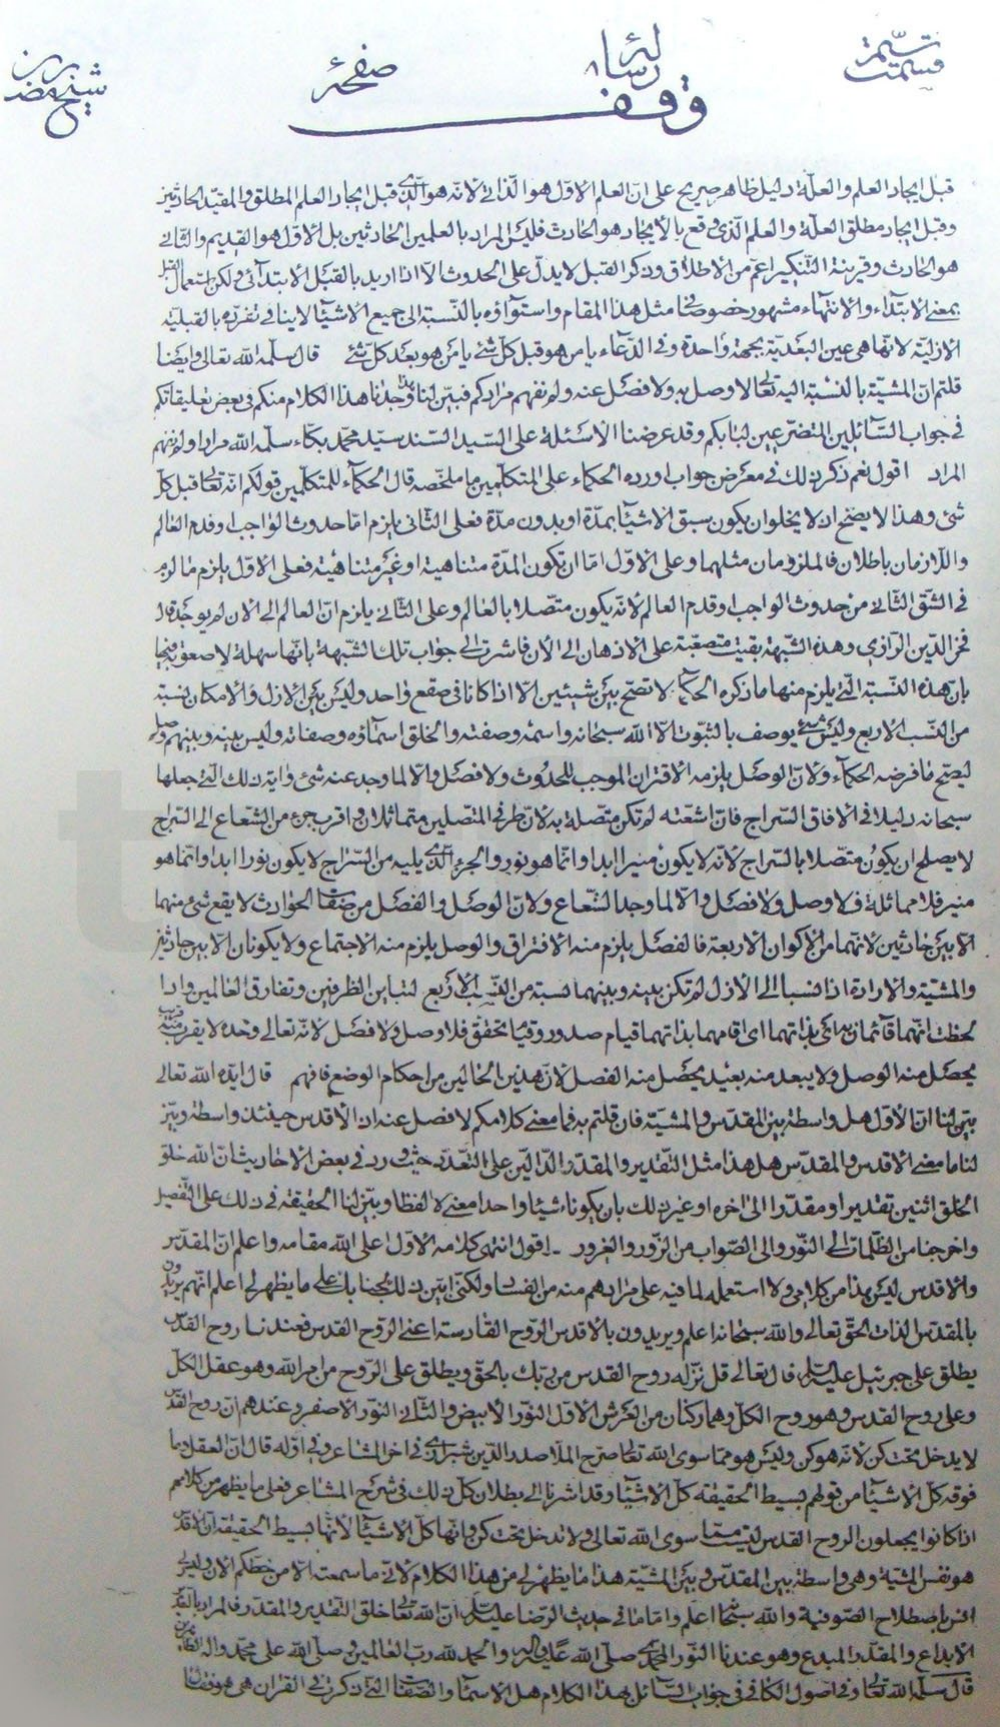 تتمة قسمت
رسالة
صفحة
شيخ
وقف
قبل ايجاد العلم والعلة دليل ظاهر صريح على ان العلم الاول هو الذاتي لانه هو الذي قبل ايجاد العلم المطلق والمقيد الحادثين
وقبل ايجاد مطلق العلة والعلم الذي وقع بالايجاد هو الحادث فليس المراد بالعلمين الحادثين بل الاول هو القديم والثاني
هو الحادث وقرينة التنكير اعم من الاطلاق وذكر القبل لا يدل على الحدوث الا اذا اريد بالقبل الابتدائي ولكن استعمال القبل
بمعنى الابتداء والانتهاء مشهور خصوصا في مثل هذا المقام واستواؤه بالنسبة الى جميع الاشياء لاينافي تفرده بالقبلية
الازلية لانها هي عين البعدية بجهة واحدة وفي الدعاء يا من هو قبل كل شئ يا من هو بعد كل شئ قال سلمه الله تعالى وايضا
قلتم ان المشية بالنسبة اليه تعالى لا وصل به ولا فصل عنه ولم نفهم مرادكم فبين لنا وجدنا هذا الكلام منكم في بعض تعليقاتكم
في جواب السائلين المتضرعين لبابكم وقد عرضنا الاسئلة على السيد السند سيد محمد بكاء سلمه الله مرارا ولم نفهم
المراد اقول نعم ذكرت ذلك في معرض جواب اورده الحكماء على المتكلمين ما ملخصه قال الحكماء للمتكلمين قولكم انه تعالى قبل كل
شئ وهذا لا يصح اذ لا يخلو ان يكون سبق الاشياء بمدة او بدون مدة فعلى الثاني يلزم اما حدوث الواجب او قدم العالم
واللازمان باطلان فالملزومان مثلهما وعلى الاول اما ان تكون المدة متناهية او غير متناهية فعلى الاول يلزم ما لزم
في الشق الثاني من حدوث الواجب او قدم العالم لانه يكون متصلا بالعالم وعلى الثاني يلزم ان العالم الى الان لم يوجد قال
فخر الدين الرازي وهذه الشبهة بقيت متصعبة على الاذهان الى الان فاشرت الى جواب تلك الشبهة بانها سهلة لا صعوبة فيها
بان هذه النسبة التي يلزم منها ما ذكره الحكماء لا تصح بين شيئين الا اذا كانا في صقع واحد وليس بين الازل والامكان نسبة
من النسب الاربع وليس شئ يوصف بالثبوت الا الله سبحانه واسمه وصفته والخلق اسماؤه وصفاته وليس بينه وبينهم وصل
ليصح ما فرضه الحكماء ولان الوصل يلزمه الاقتران الموجب للحدوث ولا فصل والا لما وجد عنه شئ واية ذلك التي جعلها
سبحانه دليلا في الافاق السراج فان اشعته لم تكن متصلة به لان طرفي المتصلين متماثلان واقرب جزء من الشعاع الى السراج
لا يصلح ان يكون متصلا بالسراج لانه لا يكون منيرا ابدا وانما هو نور والجزء الذي يليه من السراج لا يكون نورا ابدا وانما هو
منير فلا مماثلة فلا وصل ولا فصل والا لما وجد الشعاع ولان الوصل والفصل من صفات الحوادث لا يقع شئ منهما
الا بين حادثين لانهما من الاكوان الاربعة فالفصل يلزم منه الافتراق والوصل يلزم منه الاجتماع ولا يكونان الا بين حادثين
والمشية والارادة اذا نسبا الى الازل لم تكن بينه وبينهما نسبة من النسب الاربع لتباين الطرفين وتفارق العالمين واذا
لحظت انهما قائمتان به اي بذاتهما اي اقامهما بذاتهما قيام صدور وقيام تحقق فلا وصل ولا فصل لانه تعالى وحده لا يقرب منه قريب
يحصل منه الوصل ولا يبعد منه بعيد يحصل منه الفصل لان هذين الحالين من احكام الوضع فافهم قال ايده الله تعالى
بين لنا ان الاول هل واسطة بين المقدس والمشية فان قلتم به فما معنى كلامكم لا فصل عنه اذ الاقدس حينئذ واسطة وبين
لنا ما معنى الاقدس والمقدس هل هذا مثل التقدير والمقدر الدالين على التعدد حيث ورد في بعض الاحاديث ان الله خلق
الخلق اثنين تقديرا ومقدرا الى اخره او غير ذلك بان يكونا شيئا واحدا معنى لا لفظا وبين لنا الحقيقة في ذلك على التفصيل
واخرجنا من الظلمات الى النور والى الصواب من الزور والغرور - اقول انتهى كلامه الاول اعلى الله مقامه واعلم ان المقدس
والاقدس ليس هذا من كلامي ولا استعمله لما فيه على مرادهم منه من الفساد ولكني ابين ذلك لجنابك على ما يظهر لي اعلم انهم يريدون
بالمقدس الذات الحق تعالى والله سبحانه اعلم ويريدون بالاقدس الروح القادسة اعني الروح القدس فعندنا روح القدس
يطلق على جبرئيل عليه السلام قال تعالى قل نزله روح القدس من ربك بالحق ويطلق على الروح من امر الله وهو عقل الكل
وعلى روح القدس وهو روح الكل وهما ركنان من العرش الاول النور الابيض والثاني النور الاصفر وعندهم ان روح القدس
لا يدخل تحت كن لانه هو كن وليس هو مما سوى الله تعالى صرح الملا صدر الدين شيرازي في اخر المشاعر وفي اوله قال ان العقل وما
فوقه كل الاشياء من قولهم بسيط الحقيقة كل الاشياء وقد اشرنا الى بطلان كل ذلك في شرح المشاعر فعلى ما يظهر من كلامهم
اذا كانوا يجعلون الروح القدس ليست مما سوى الله تعالى ولا تدخل تحت كن وانها كل الاشياء لانها بسيط الحقيقة ان الاقدس
هو نفس المشية وهي واسطة بين المقدس وبين المشية هذا ما يظهر لي من هذا الكلام لاني ما سمعته الا من خطكم الان وليس لي
انس باصطلاح الصوفية والله سبحانه اعلم واما ما في حديث الرضا عليه السلام ان الله تعالى خلق التقدير والمقدر فالمراد بالتقدير
الابداع والمقدر المبدع وهو عندنا النور المحمدي صلى الله عليه واله والحمد لله رب العالمين وصلى الله على محمد واله الطاهرين
قال سلمه الله تعالى وفي اصول الكافي في جواب السائل بهذا الكلام هل الاسماء والصفات التي ذكرت في القران هي هو فقال